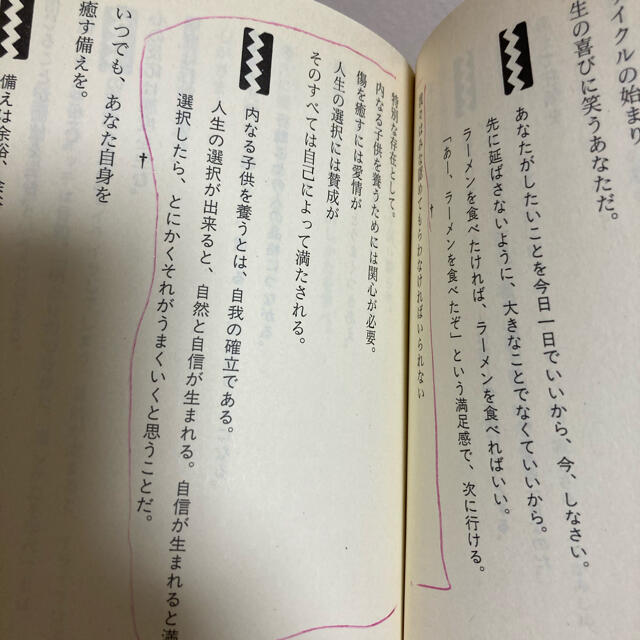 イクルの始まり
生の喜びに笑うあなただ。
あなたがしたいことを今日一日でいいから、今、しなさい。
先に延ばさないように、大きなことでなくていいから。
ラーメンを食べたければ、ラーメンを食べればいい。
「あー、ラーメンを食べたぞ」という満足感で、次に行ける。
†
もらわなければいられない
特別な存在として。
内なる子供を養うためには関心が必要。
傷を癒すには愛情が
人生の選択には賛成が
そのすべては自己によって満たされる。
内なる子供を養うとは、自我の確立である。
人生の選択が出来ると、自然と自信が生まれる。自信が生まれると満
選択したら、とにかくそれがうまくいくと思うことだ。
†
いつでも、あなた自身を
癒す備えを。
備えは余裕、